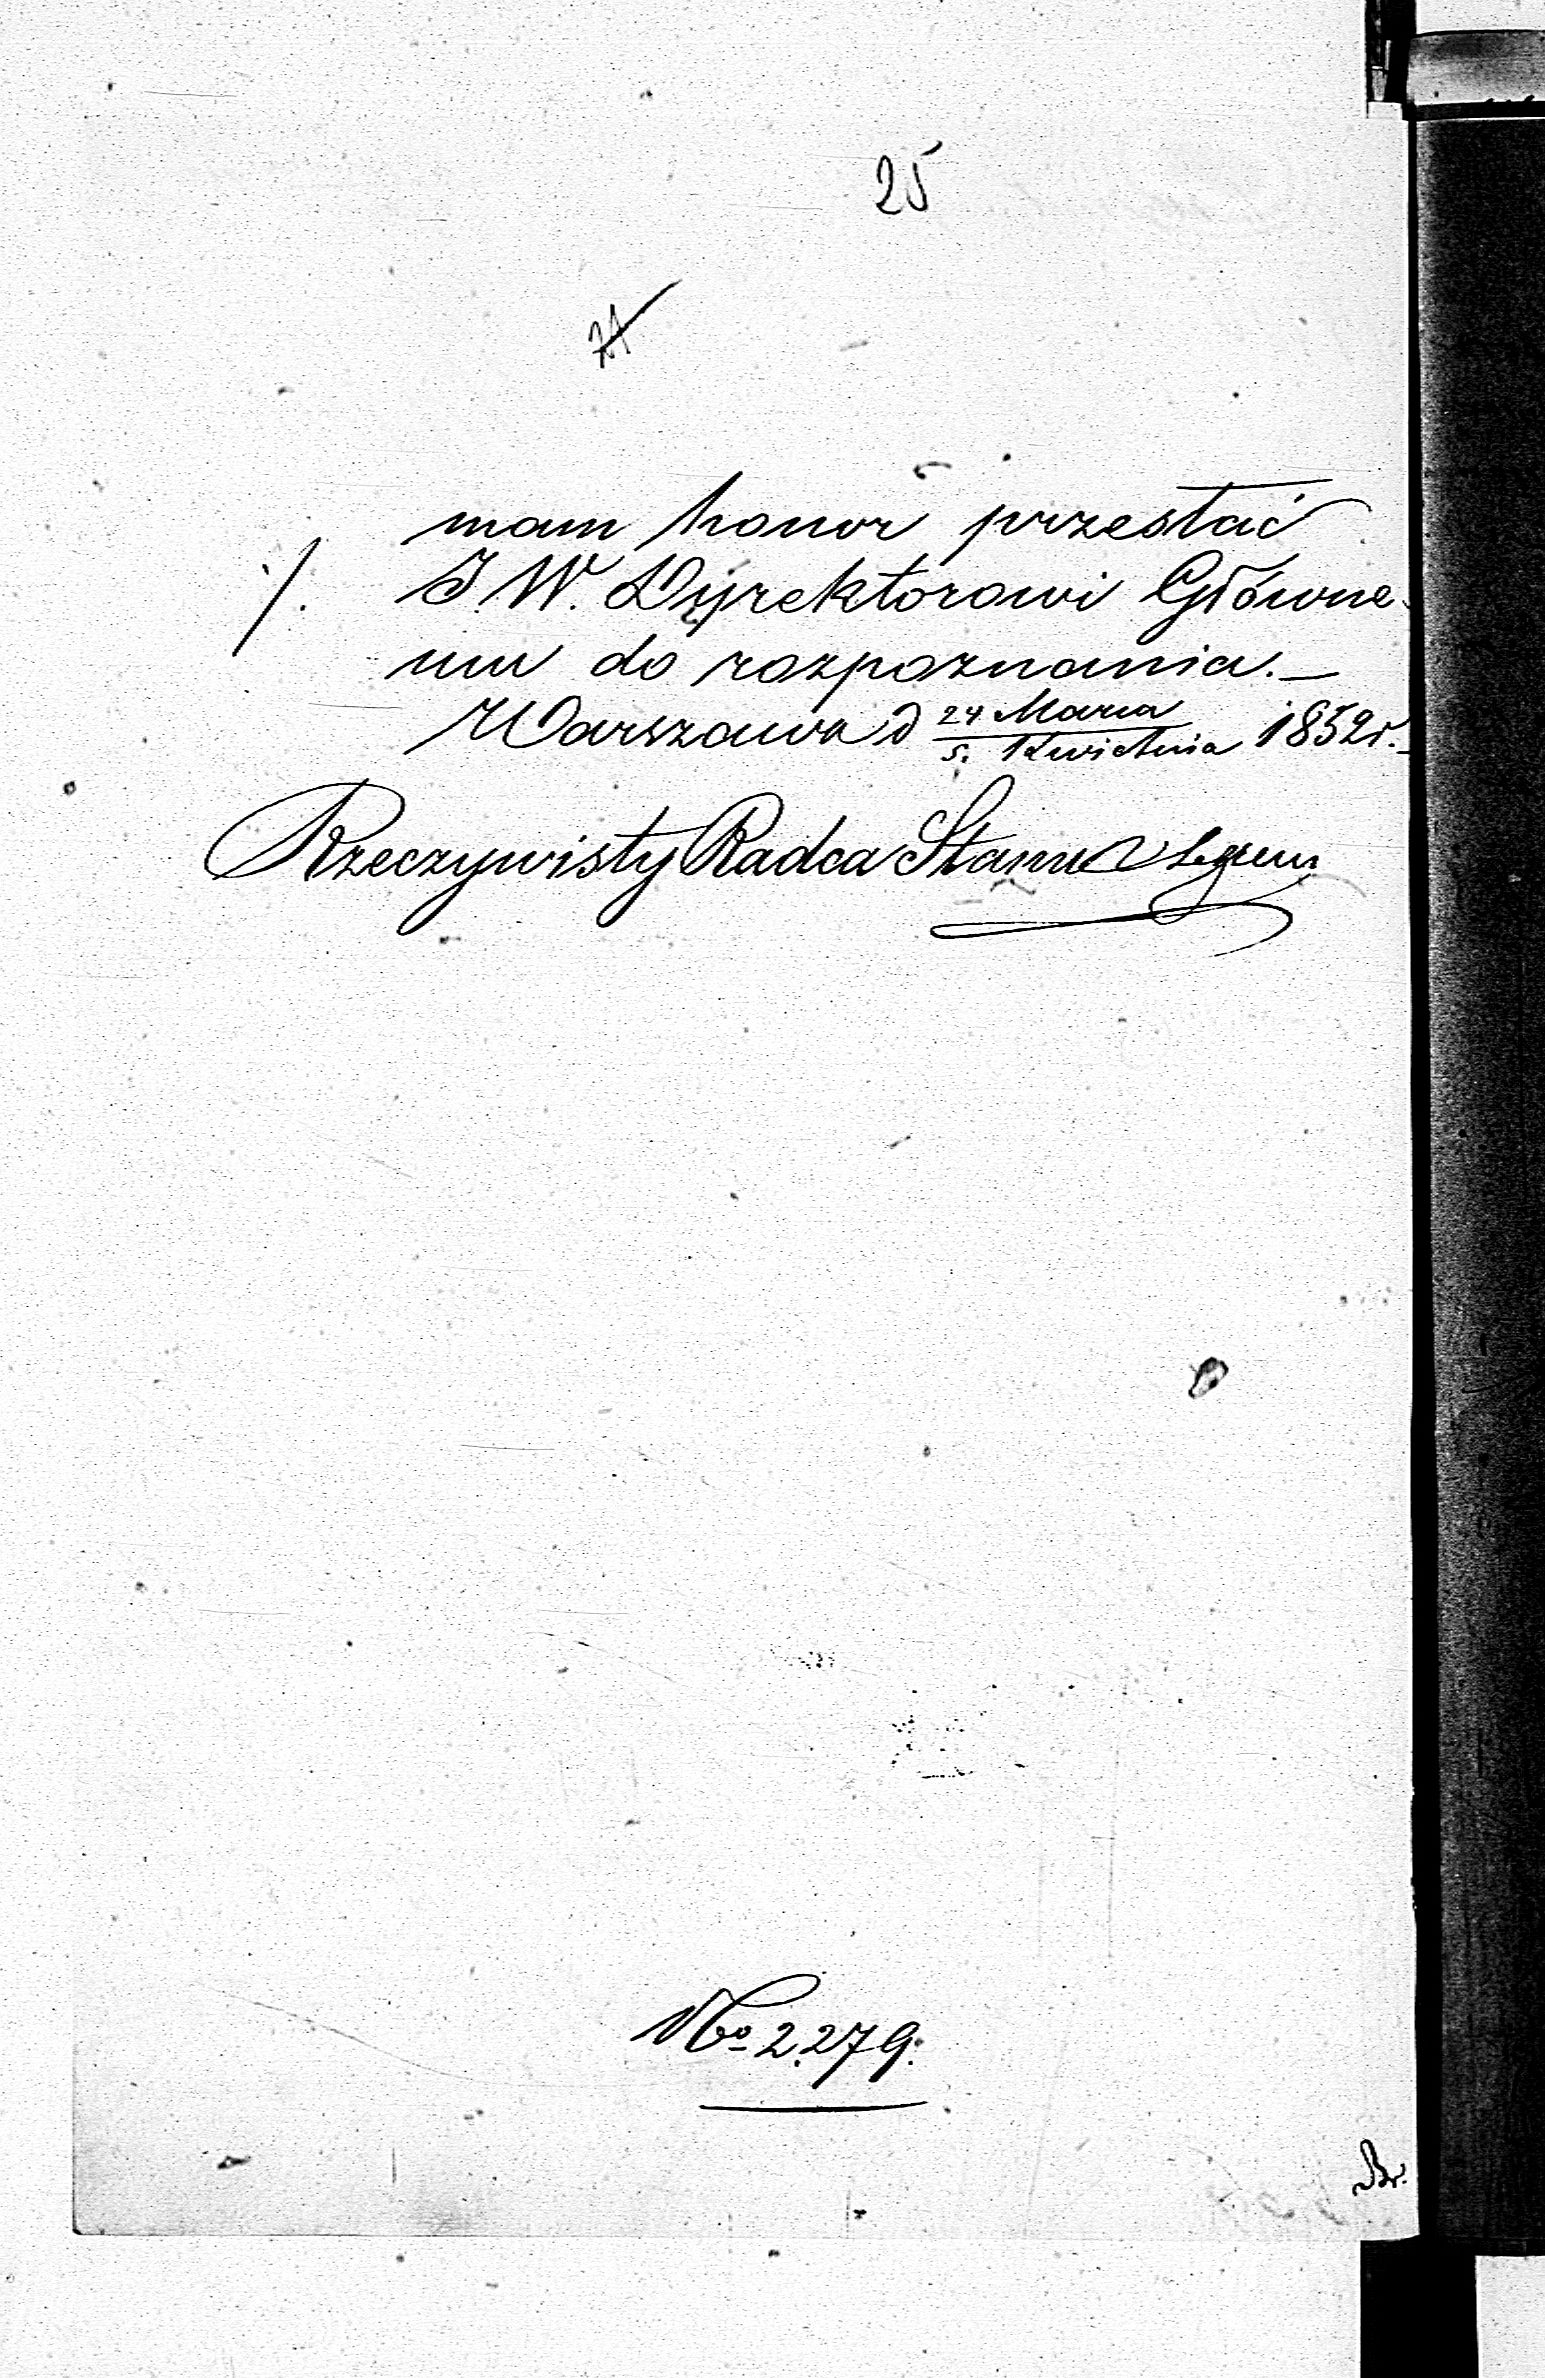 25
21
mam honor przesłać
/. J.W. Dyrektorowi Główne-
mu do rozpoznania.—
Warszawa d 24 Marca / 5. Kwietnia 1852 r.
Rzeczywisty Radca Stanu
No 2.279.
Br.